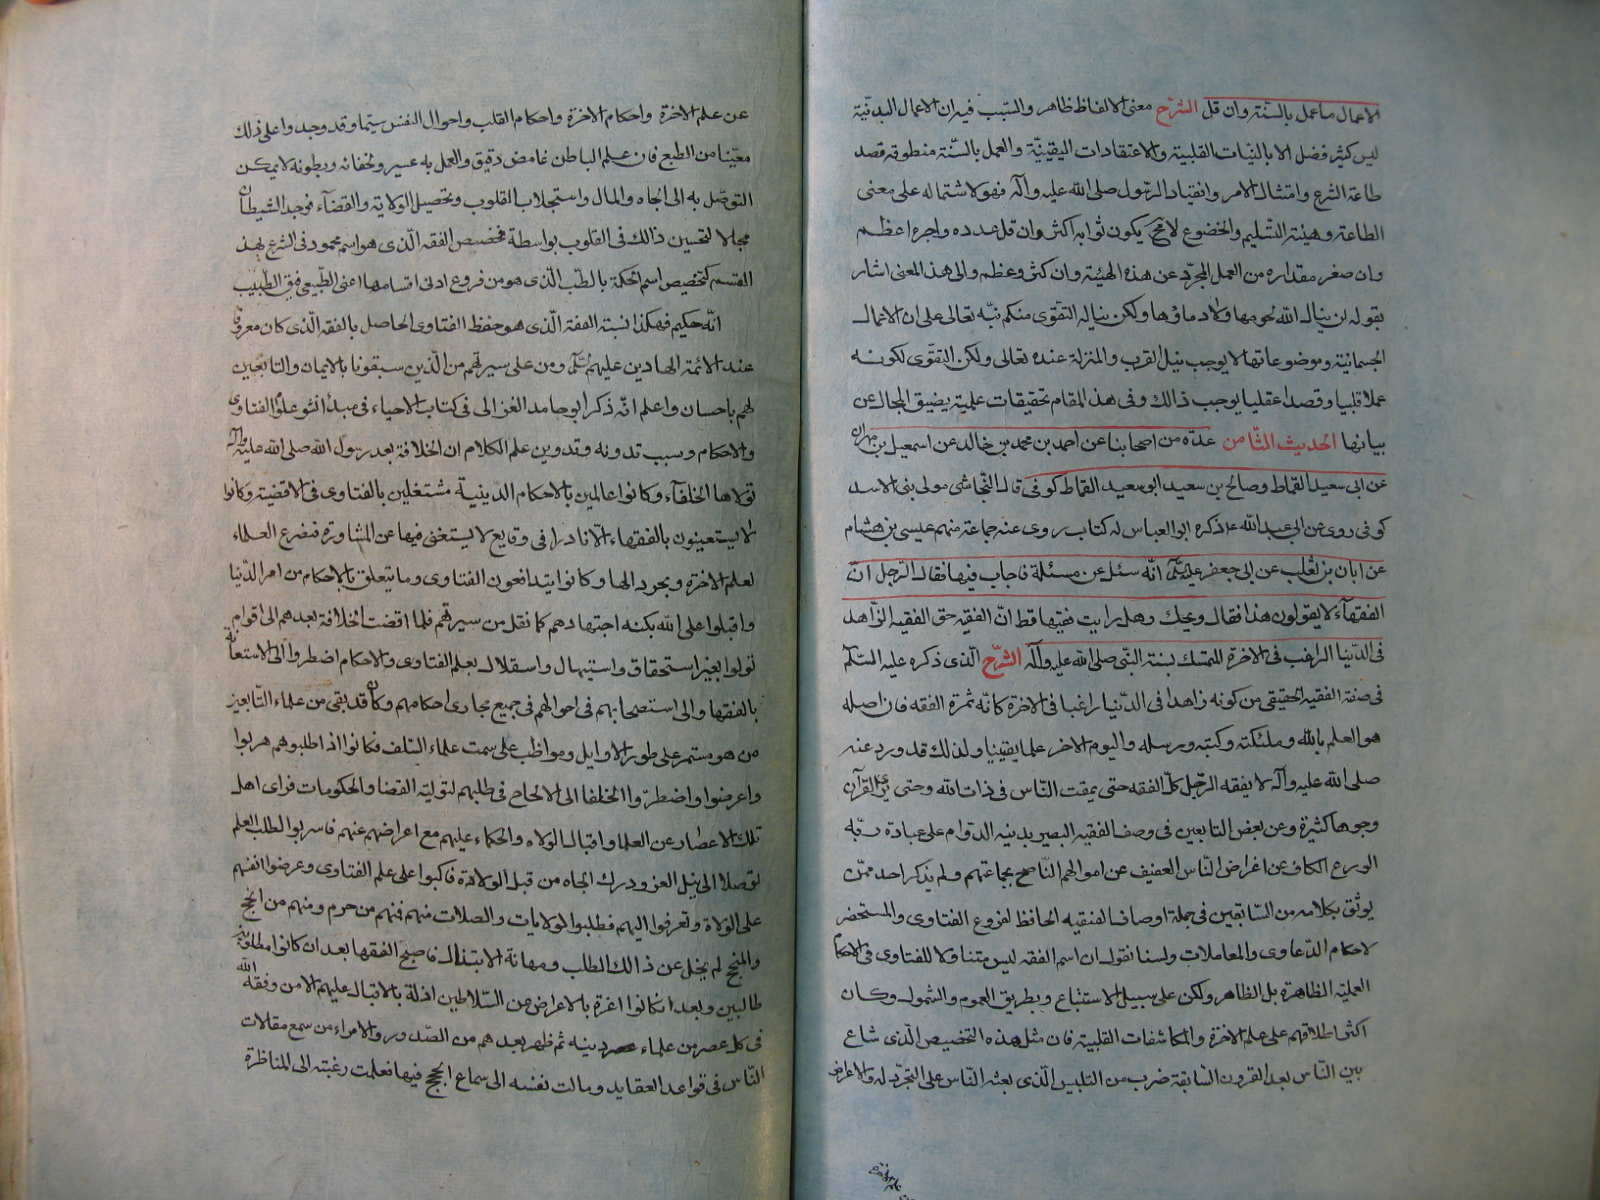 الاعمال ما عمل بالسنة وان قل الشرح معنى الالفاظ ظاهر والسبب فيه ان الاعمال البدنية
ليس كثير فضل الا بالنيات القلبية والاعتقادات اليقينية والعمل بالسنة منطوقه قصد
طاعة الشرع وامتثال الامر وانقياد الرسول صلى الله عليه وآله فهو لاشتماله على معنى
الطاعة وهيئة التسليم والخضوع لا مح يكون ثوابه اكثر وان قل عدده واجره اعظم
وان صغر مقداره من العمل المجرد عن هذه الهيئة وان كثر وعظم والى هذا المعنى اشار
بقوله لن ينال الله لحومها ولا دماؤها ولكن يناله التقوى منكم نبه تعالى على ان الاعمال
الجسمانية وموضوعاتها لا يوجب نيل القرب والمنزلة عنده تعالى ولكن التقوى لكونه
عملا قلبيا وقصدا عقليا يوجب ذالك وفى هذا المقام تحقيقات علمية يضيق المجال عن
بيانها الحديث الثامن عدة من اصحابنا عن احمد بن محمد بن خالد عن اسمعيل بن مهران
عن ابى سعيد القماط وصالح بن سعيد ابو سعيد القماط كوفى قال النجاشى مولى بنى الاسد
كوفى روى عن ابى عبد الله ع ذكره ابو العباس له كتاب روى عنه جماعة منهم عيسى بن هشام
عن ابان بن تغلب عن ابى جعفر عليه السلام انه سئل عن مسئلة فاجاب فيها فقال الرجل ان
الفقهآء لا يقولون هذا فقال ويحك وهل رايت فقيها قط ان الفقيه حق الفقيه الزاهد
فى الدنيا الراغب فى الاخرة المتمسك بسنة النبى صلى الله عليه وآله الشرح الذى ذكره عليه السلام
فى صفة الفقيه الحقيقى من كونه زاهدا فى الدنيا راغبا فى الاخرة كانه ثمرة الفقه فان اصله
هو العلم بالله وملئكته وكتبه ورسله واليوم الاخر علما يقينيا ولذلك قد ورد عنه
صلى الله عليه وآله لا يفقه الرجل كل الفقه حتى يمقت الناس فى ذات الله وحتى يرى للقرآن
وجوها كثيرة وعن بعض التابعين فى وصف الفقيه البصير بدينه الدوام على عبادة ربه
الورع الكاف عن اغراض الناس العفيف عن اموالهم الناصح بجماعتهم ولم يذكر احد ممن
يوثق بكلامه من السابقين فى جملة اوصاف الفقيه الحافظ لفروع الفتاوى والمستحضر
لاحكام الدعاوى والمعاملات ولسنا نقول ان اسم الفقه ليس متناولا للفتاوى فى الاحكام
العملية الظاهرة بل الظاهر ولكن على سبيل الاستتباع وبطريق العموم والشمول وكان
اكثر اطلاقهم على علم الاخرة والمكاشفات القلبية فان مثل هذه التخصيص الذى شاع
بين الناس بعد القرون السابقة ضرب من التلبيس الذى بعث الناس على التجرد له والاعراض
عن علم الاخرة واحكام الاخرة واحكام القلب واحوال النفس سيما وقد وجدوا على ذلك
معينا من الطبع فان علم الباطن غامض دقيق والعمل به عسير ولخفائه وبطونه لا يمكن
التوصل به الى الجاه والمال واستجلاب القلوب وتحصيل الولاية والقضآء فوجد الشيطان
مجالا لتحسين ذالك فى القلوب بواسطة تخصيص الفقه الذى هو اسم محمود فى الشرع بهذ
القسم كتخصيص اسم الحكمة بالطب الذى هو من فروع ادنى اقسامها اعنى الطبيعى فيق الطبيب
انه حكيم فهكذا نسبة الفقه الذى هو حفظ الفتاوى الحاصل بالفقه الذى كان معروفا
عند الائمة الهادين عليهم السلام ومن على سيرتهم من الذين سبقونا بالايمان والتابعين
لهم باحسان واعلم انه ذكر ابو حامد الغزالى فى كتاب الاحياء فى مبدأ نشو علم الفتاوى
والاحكام وسبب تدونه وتدوين علم الكلام ان الخلافة بعد رسول الله صلى الله عليه وآله
تولاها الخلفآء وكانوا عالمين بالاحكام الدينية مشتغلين بالفتاوى فى الاقضية وكانوا
لا يستعينون بالفقهاء الا نادرا فى وقايع لا يستغنى فيها عن المشاورة فتضرع العلماء
لعلم الاخرة وتجرد الها وكانوا يتدافعون الفتاوى وما يتعلق بالاحكام من امر الدنيا
واقبلوا على الله بكنه اجتهادهم كما نقل من سيرتهم فلما افضت الخلافة بعدهم الى اقوام
تولوا بغير استحقاق واستيهال واستقلال بعلم الفتاوى والاحكام اضطروا الى الاستعانة
بالفقها والى استصحابهم فى احوالهم فى جميع مجارى احكامهم وكان قد بقى من علماء التابعين
من هو مستمر على طور الاوايل ومواظب على سمت علماء السلف فكانوا اذا طلبوهم هربوا
واعرضوا واضطروا الخلفا الى الالحاح فى طلبهم لتولية القضا والحكومات فراى اهل
تلك الاعصار عن العلما واقبال الولاه والحكماء عليهم مع اعراضهم عنهم فاسربوا لطلب العلم
توصلا الى نيل العز ودرك الجاه من قبل الولادة فاكبوا على علم الفتاوى وعرضوا انفسهم
على الولاة وتعرفوا اليهم فطلبوا الولايات والصلات منهم فمنهم من حرم ومنهم من انجح
والمنجح لم يخل عن ذالك الطلب ومهانة الابتذال فاصبح الفقها بعد ان كانوا مطلوبين
طالبين وبعد ان كانوا اعزة بالاعراض عن السلاطين اذلة بالاقبال عليهم الا من وفقه الله
فى كل عصر من علماء دينه ثم ظهر بعدهم من الصدور والامراء من سمع مقالات
الناس فى قواعد العقايد ومالت نفسه الى سماع الحجج فيها فعلمت رغبته الى المناظرة